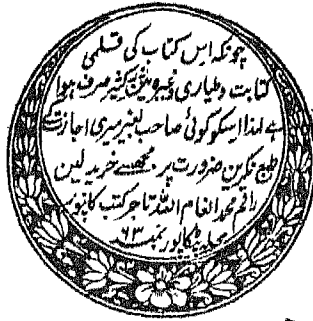 چونکہ اس کتاب کی قسلمی
کتابت و طیاری وغیرہ میں کثیر صرف ہوا
ہے لہذا اسکو کوئی صاحب بغیر میری اجازت کے
طبع نکرین ضرورت پر مجھسے خرید لین
راقم محمد انعام اللہ تاجر کتب کانپور
محلہ پٹکاپور نمبر ۶۳